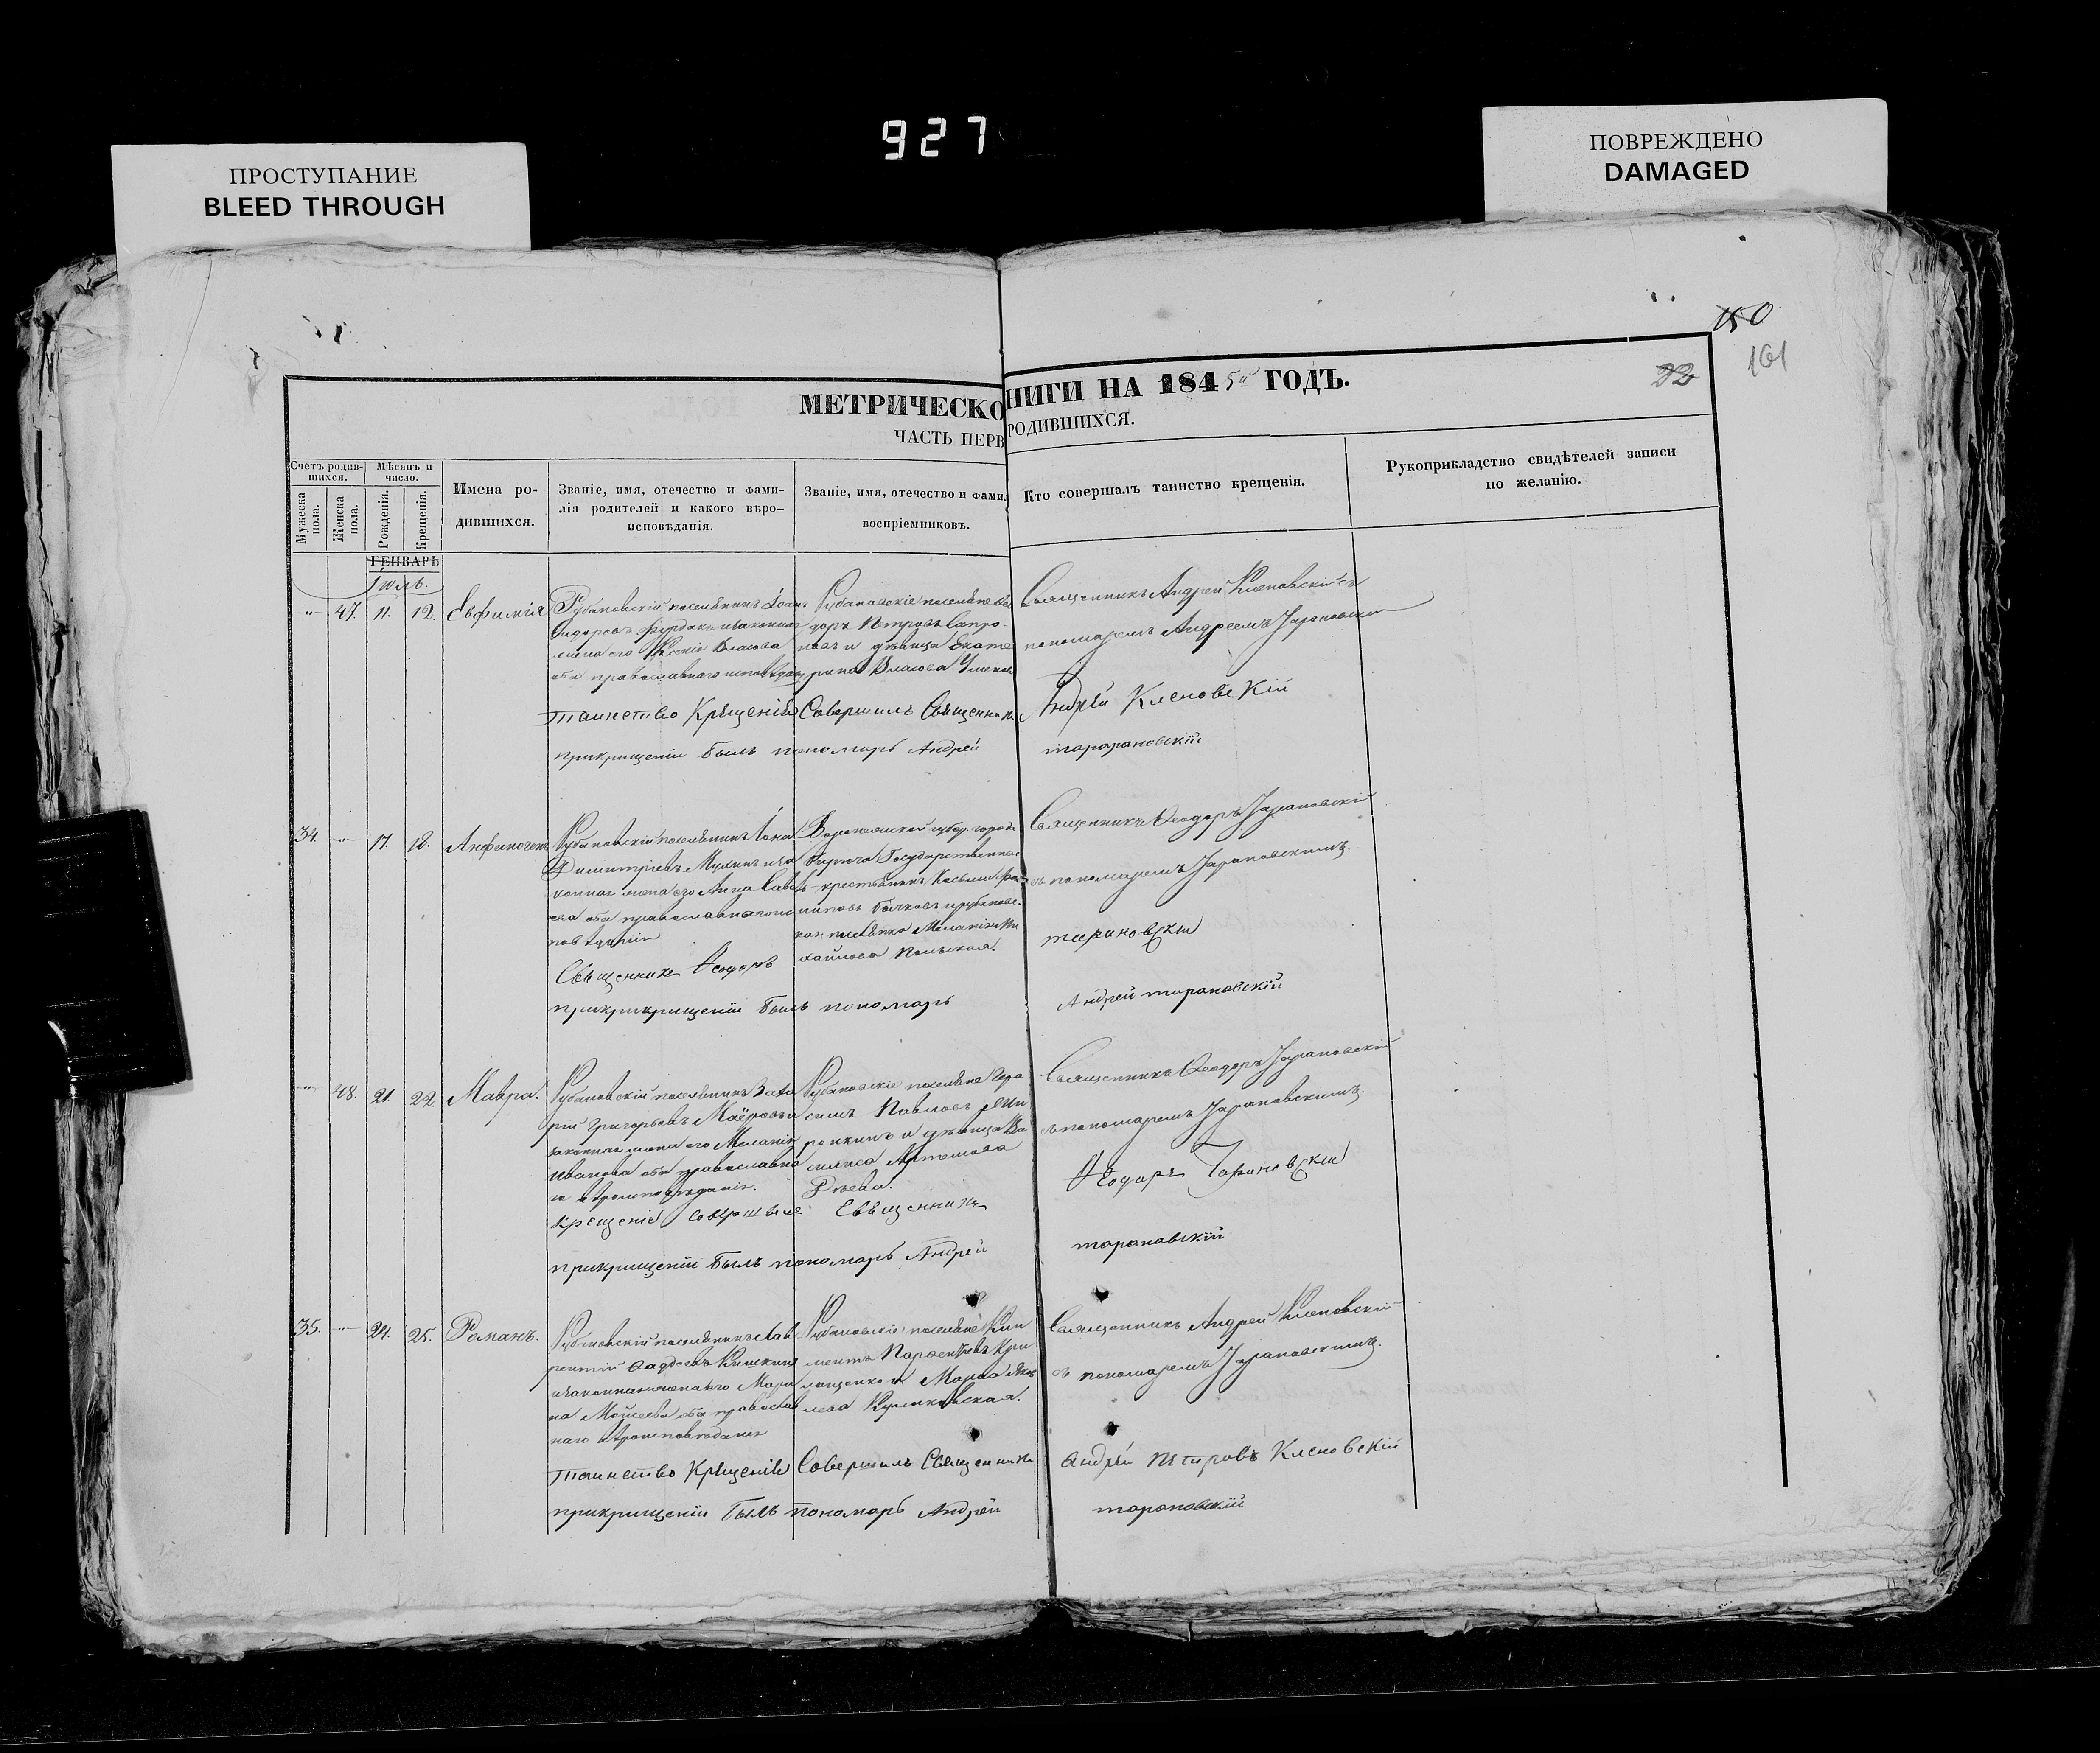 927
ПРОСТУПАНИЕ
BLEED THROUGH
ПОВРЕЖДЕНО
DAMAGED
150
161
22
МЕТРИЧЕСКО НИГИ НА 1845й ГОДЪ.
ЧАСТЬ ПЕРВ РОДИВШИХСЯ.
Счетъ родив-
шихся.
Мужеска пола.
Женска пола.
Мѣсяцъ и
число.
Рожденія.
Крещенія.
Имена ро-
дившихся.
Званіе, имя, отечество и фами-
лія родителей и какого вѣро-
исповѣданія.
Званіе, имя, отечество и фами.
воспріемниковъ.
Кто совершалъ таинство крещенія.
Рукоприкладство свидѣтелей записи
по желанію.
ГЕНВАРЬ
Іюль.
47. 11. 12. Евфимія
Рубановскій поселянинъ Іоанъ
Сидоровъ и законная
жена его Ксенія Власова
оба православнаго
Рубановскіе поселяне
доръ Петровъ Сапро-
новъ и дѣвица Екате
рина Власова
Священникъ Андрей Кленовскій съ
пономаремъ Андреемъ Тарановским
таинство Крещенія Совершилъ Священникъ Андрей Кленовскій
прикрищеніи былъ пономарь Андрей тарановскій
34. 17. 18. Анфиногенъ
Рубановскій поселянинъ Іона
Димитріевъ и за
конная жена его Анна
ева оба православнаго
Воронежской губер. города
Бирюча Государственной
крестьянинъ Косьма
кая поселянка Меланія Ми
хайлова
Священникъ Ѳеодоръ Тарановскій
съ пономаремъ Тарановскимъ.
Священникъ Ѳеодоръ тарановскій
былъ пономарь Андрей тарановскій
48. 21. 22. Мавра.
Рубановскій поселянинъ Заха
рій Григорьевъ
законная жена его Меланія
Иванова оба православна
го вѣроисповѣданія.
Рубановскіе поселяне Гера
симъ Павловъ
и дѣвица Ва
силиса Артемова
Священникъ Ѳеодоръ Тарановскій
съ пономаремъ Тарановскимъ.
крещеніе совершилъ Священникъ Ѳеодоръ Тарановскій
прикрищеніи былъ пономарь Андрей тарановскій
35. 24. 25. Романъ.
Рубановскій поселянинъ Лав
рентій Ѳаддеевъ Кишкинъ
и законная жена его Мари
на Моисеева оба православ
наго вѣроисповѣданія
Рубановскіе поселяне Кли
ментъ Парѳентіевъ Кри
мащенко и Марѳа
Священникъ Андрей Кленовскій
съ пономаремъ Тарановскимъ.
таинство Крещеніе Совершилъ Священникъ Андрей Петровъ Кленовскій
прикрищеніи былъ пономарь Андрей тарановскій